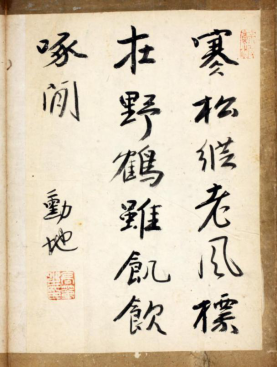 寒松縱老風標
在野鶴雖飢飲
啄閒
動地